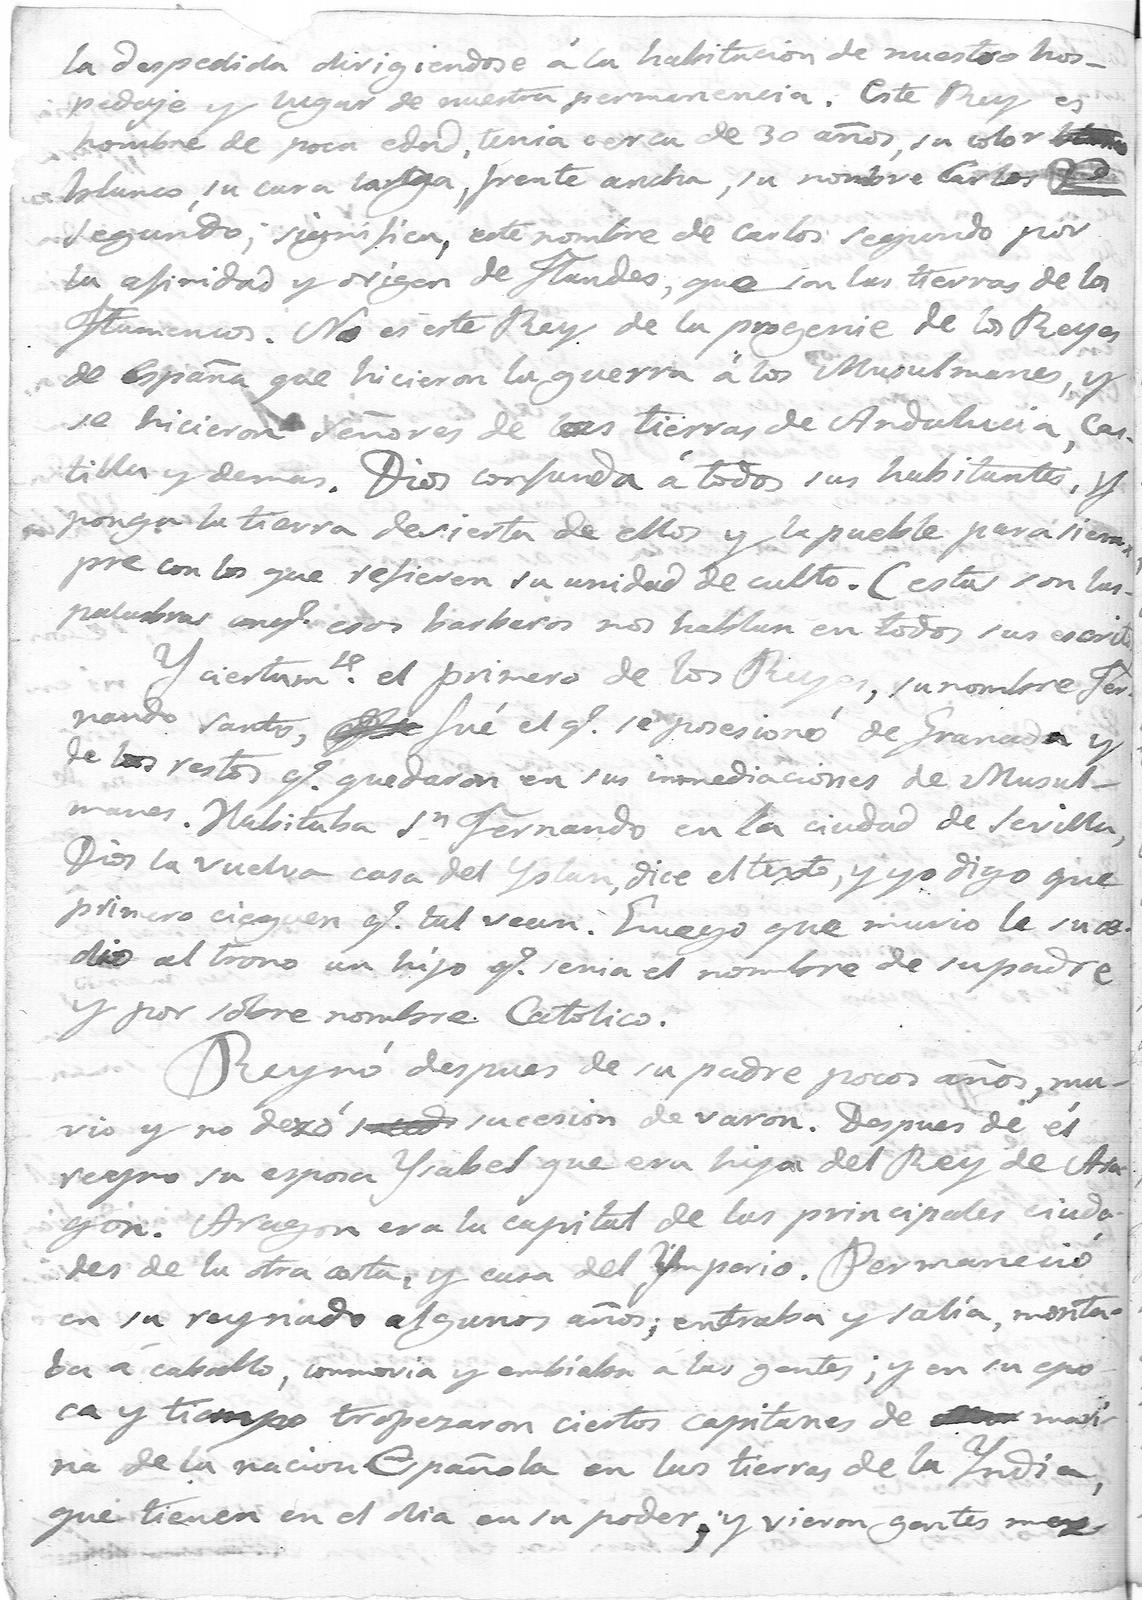 la despedida dirigiendose á la habitacion de nuestro hos-
pedaje y lugar de nuestra permanencia. Este Rey es
hombre de poca edad, tenia cerca de 30 años, su color
blanco, su cara larga, frente ancha, su nombre Carlos
segundo; significa, este nombre de Carlos segundo por
la afinidad y origen de Flandes, que son las tierras de los
Flamencos. No es este Rey de la progenie de los Reyes
de España que hicieron la guerra á los Musulmanes, y
se hicieron señores de las tierras de Andalucia, Cas-
tilla y demas. Dios confunda á todos sus habitantes, y
ponga la tierra desierta de ellos y la pueble para siem-
pre con los que refieren su unidad de culto. (estas son las
palabras conq.e esos barbaros nos hablan en todos sus escrito
Y ciertam.te el primero de los Reyes, su nombre Fer-
nando santo, fué el q.e se posesionó de Granada y
de los restos q.e quedaron en sus inmediaciones de Musul-
manes. Habitaba S.n Fernando en la ciudad de Sevilla,
Dios la vuelva casa del Yslan, dice el texto, y yo digo que
primero cieguen q.e tal vean. Luego que murio le suce-
dio al trono un hijo q.e tenia el nombre de su padre
y por sobre nombre Catolico.
Reynó despues de su padre pocos años, mu-
rio y no dexó sucesion de varon. Despues de él
reyno su esposa Ysabel que era hija del Rey de Ara-
gon. Aragon era la capital de las principales ciuda-
des de la otra costa, y casa del Ymperio. Permaneció
en su reynado algunos años; entraba y salia, monta-
ba á caballo, conmovia y embiaba á las gentes; y en su epo-
ca y tiempo tropezaron ciertos capitanes de mari-
na de la nacion Española en las tierras de la Yndia,
que tienen en el dia en su poder; y vieron gentes